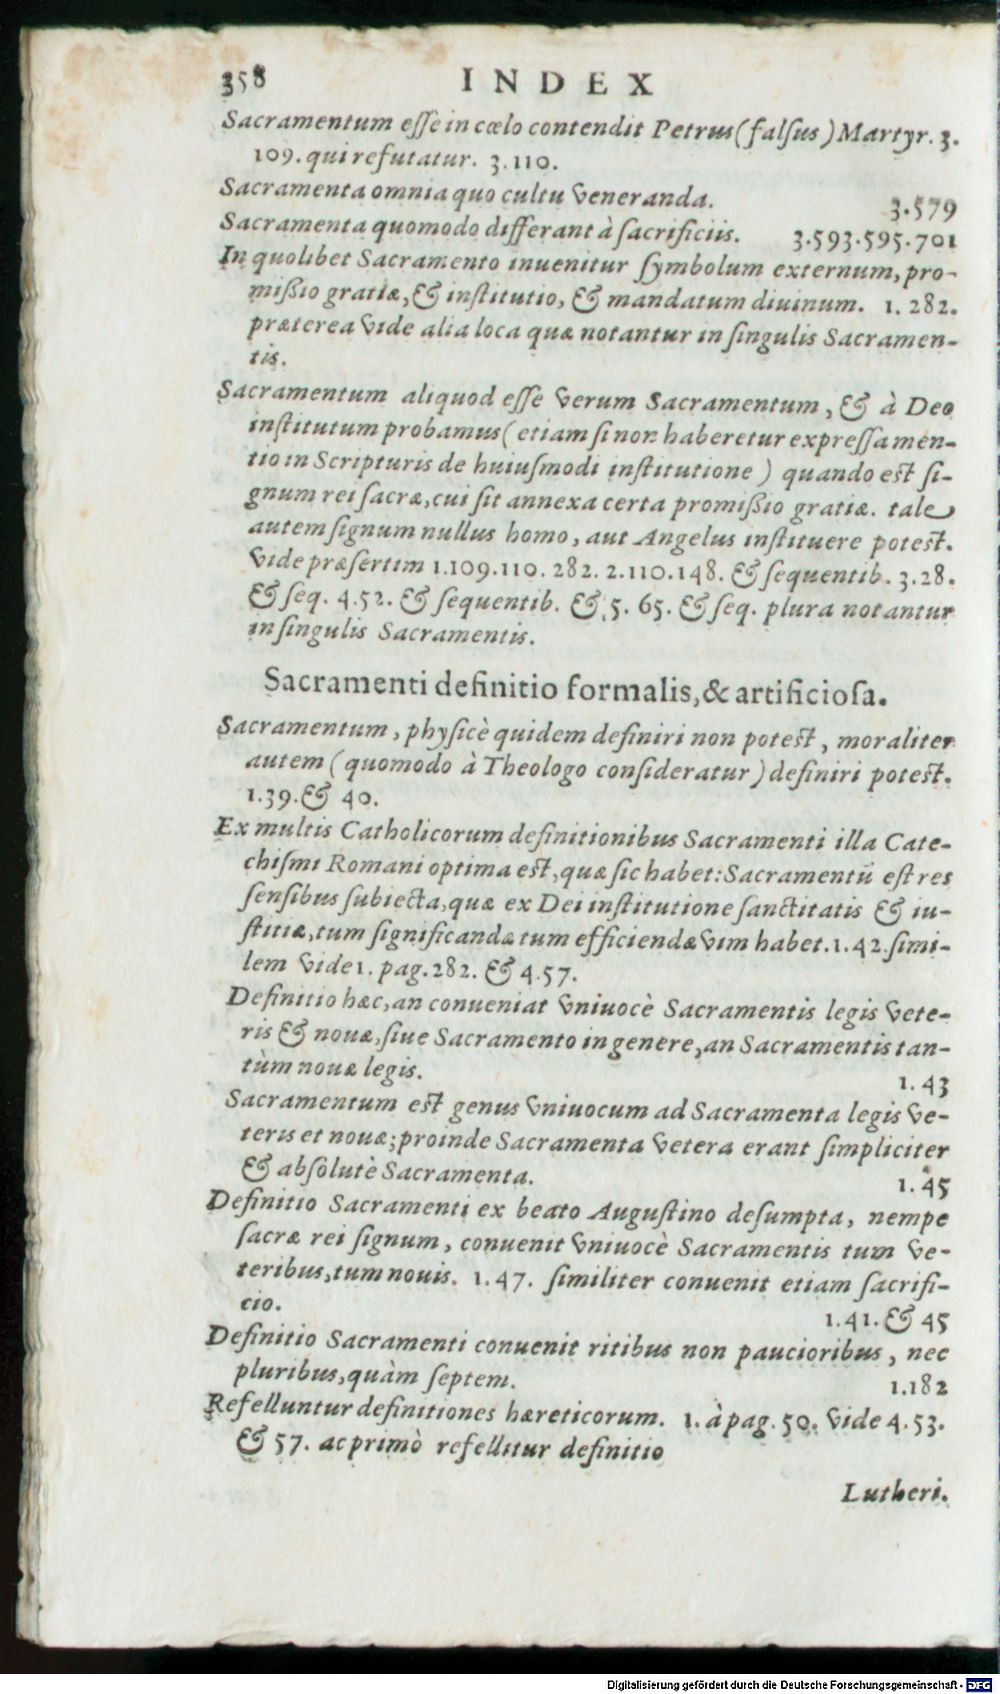 358 INDEX
Sacramentum eſſe in cœlo contendit Petrus (falſus) Martyr. 3.
109. qui refutatur. 3.110.
Sacramenta omnia quo cultu veneranda. 3.579
Sacramenta quomodo differant à ſacrificiis. 3.593.595.701
In quolibet Sacramento inuenitur ſymbolum externum, pro-
miſsio gratiæ, & inſtitutio, & mandatum diuinum. 1. 282.
præterea vide alia loca quæ notantur in ſingulis Sacramen-
tis.
Sacramentum aliquod eſſe verum Sacramentum, & à Deo
inſtitutum probamus (etiam ſi non haberetur expreſſa men-
tio in Scripturis de huiuſmodi inſtitutione) quando eſt ſi-
gnum rei ſacræ, cui ſit annexa certa promiſsio gratiæ. tale
autem ſignum nullus homo, aut Angelus inſtituere poteſt.
Vide præſertim 1.109.110. 282. 2.110.148. & ſequentib. 3.28.
& ſeq. 4.52. & ſequentib. & 5. 65. & ſeq. plura notantur
in ſingulis Sacramentis.
Sacramenti definitio formalis, & artificioſa.
Sacramentum, phyſicè quidem definiri non poteſt, moraliter
autem (quomodo à Theologo conſideratur) definiri poteſt.
1.39. & 40.
Ex multis Catholicorum definitionibus Sacramenti illa Cate-
chiſmi Romani optima eſt, quæ ſic habet: Sacramentū eſt res
ſenſibus ſubiecta, quæ ex Dei inſtitutione ſanctitatis & iu-
ſtitiæ, tum ſignificandæ tum efficiendæ vim habet. 1.42. ſimi-
lem vide 1. pag. 282. & 4.57.
Definitio hæc, an conueniat vniuocè Sacramentis legis vete-
ris & nouæ, ſiue Sacramento in genere, an Sacramentis tan-
tùm nouæ legis. 1. 43
Sacramentum eſt genus vniuocum ad Sacramenta legis ve-
teris et nouæ; proinde Sacramenta vetera erant ſimpliciter
& abſolutè Sacramenta. 1. 45
Definitio Sacramenti ex beato Auguſtino deſumpta, nempe
ſacræ rei ſignum, conuenit vniuocè Sacramentis tum ve-
teribus, tum nouis. 1.47. ſimiliter conuenit etiam ſacrifi-
cio. 1.41. & 45
Definitio Sacramenti conuenit ritibus non paucioribus, nec
pluribus, quàm ſeptem. 1.182
Refelluntur definitiones hæreticorum. 1. à pag. 50. vide 4.53.
& 57. ac primò refellitur definitio
Lutheri.
Digitalisierung gefördert durch die Deutsche Forschungsgemeinschaft - DFG